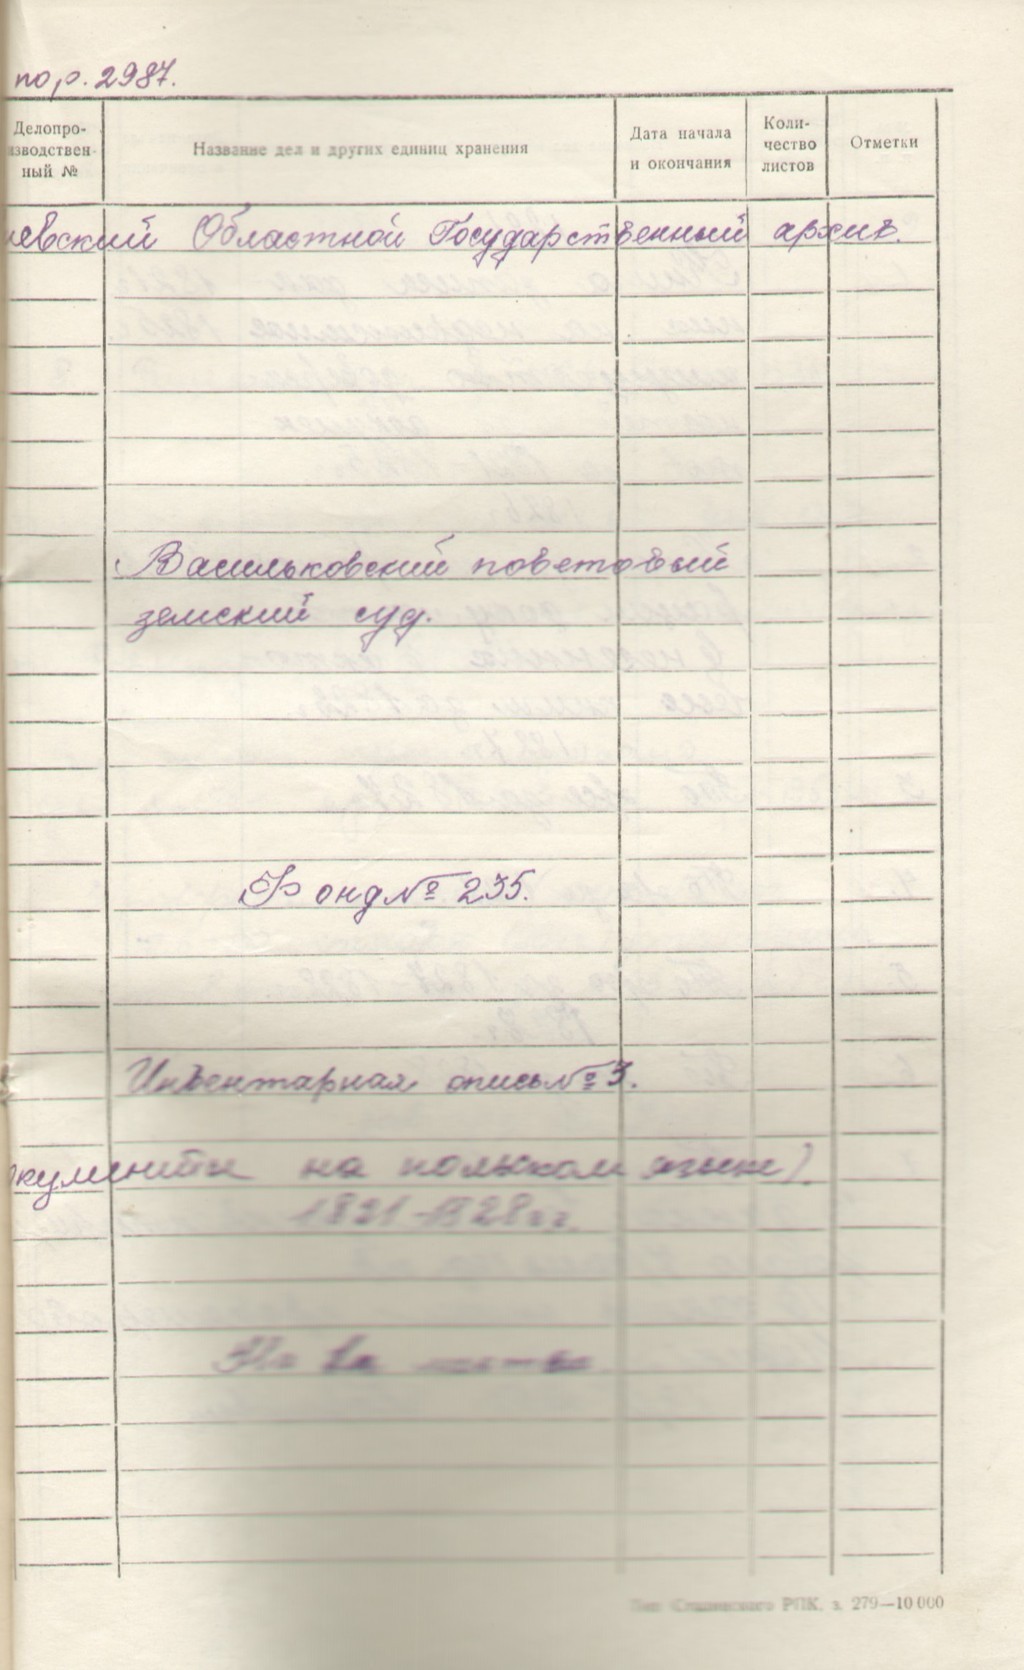 по р. 2987.
Делопро-
изводствен-
ный №
Название дел и других единиц хранения
Дата начала
и окончания
Коли-
чество
листов
Отметки
иевский Областной Государственный архив.
Васильковский поветовый
земский суд.
Фонд № 235.
Инвентарная опись № 3.
окументы на польском языке).
1821-1828 гг.
На
РПК, з. 279—10 000